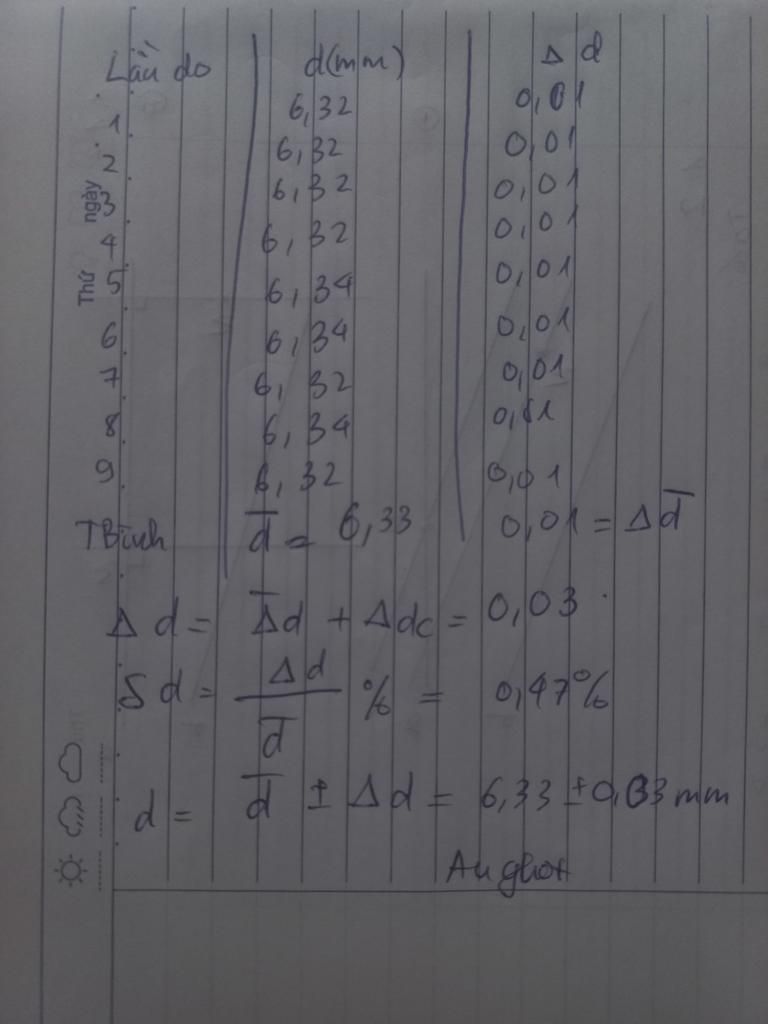 Lần đo d(mm) Δ d
1 6,32 0,01
2 6,32 0,01
3 6,32 0,01
4 6,32 0,01
5 6,34 0,01
6 6,34 0,01
7 6,32 0,01
8 6,34 0,01
9 6,32 0,01
Thứ ngày
TBình d̅ = 6,33 0,01 = Δd̅
Δ d = Δ̅d + Δdc = 0,03
δ d = Δd / d̅ % = 0,47%
d = d̅ ± Δ d = 6,33 ± 0,03 mm